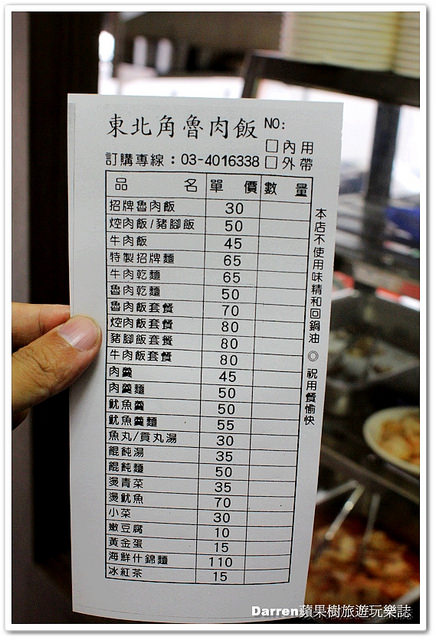 東北角魯肉飯 NO:
□內用
訂購專線：03-4016338 □外帶
品名 單價 數量
招牌魯肉飯 30
焢肉飯/豬腳飯 50
牛肉飯 45
特製招牌麵 65
牛肉乾麵 65
魯肉乾麵 50
魯肉飯套餐 70
焢肉飯套餐 80
豬腳飯套餐 80
牛肉飯套餐 80
肉羹 45
肉羹麵 50
魷魚羹 50
魷魚羹麵 55
魚丸/貢丸湯 30
餛飩湯 35
餛飩麵 50
燙青菜 35
燙魷魚 70
小菜 30
嫩豆腐 10
黃金蛋 15
海鮮什錦麵 110
冰紅茶 15
本店不使用味精和回鍋油 ◎ 祝用餐愉快
Darren蘋果樹旅遊玩樂誌